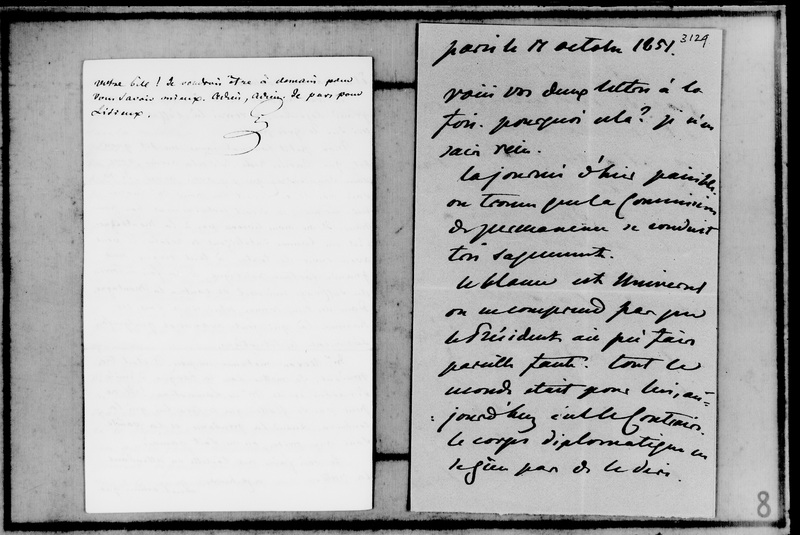 votre bile ! Je voudrois être à demain pour
vous savoir mieux. Adieu, adieu, Je pars pour
Lisieux.
3129
paris le 17 octobre 1851.
voici vos deux lettres à la
fois. pourquoi cela ? je n'en
sais rien.
la journée d'hier paisible.
on trouve que la Commission
de permanence se conduit
très sagement.
le blame est Universel
on ne comprend pas que
le Président ait pu faire
pareille faute. tout le
monde était pour lui, au-
jourd'huy c'est le Contraire.
le corps diplomatique ne
se gêne pas de le dire.
8